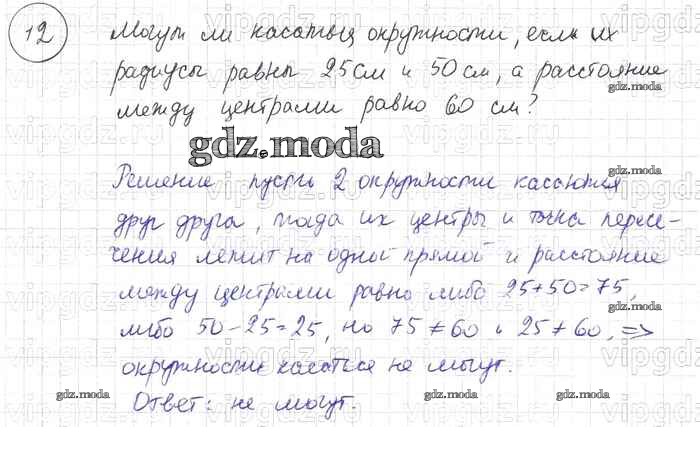 12 Могут ли касаться окружности, если их
радиусы равны 25 см и 50 см, а расстояние
между центрами равно 60 см?
gdz.moda
Решение пусть 2 окружности касаются
друг друга, тогда их центры и точка пересе-
чения лежит на одной прямой и расстояние
между центрами равно либо 25+50=75,
либо 50-25=25, но 75≠60 и 25≠60, =>
окружности касаться не могут.
Ответ: не могут.
gdz.moda
gdz.moda
gdz.moda
gdz.moda
gdz.moda
gdz.moda